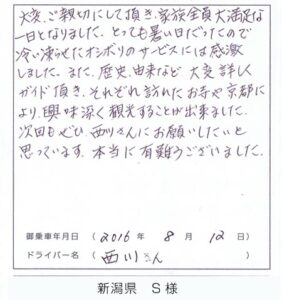 大変、ご親切にして頂き、家族全員大満足な
一日となりました。とっても暑い日だったので
冷い凍らせたオシボリのサービスには感激
しました。また、歴史、由来など 大変詳しく
ガイド頂き、それぞれ訪れたお寺や京都に
より、興味深く観光することが出来ました。
次回もぜひ、西川さんにお願いしたいと
思っています。本当に有難うございました。
御乗車年月日 ( 2016 年 8 月 12 日)
ドライバー名 ( 西川さん )
新潟県 S 様